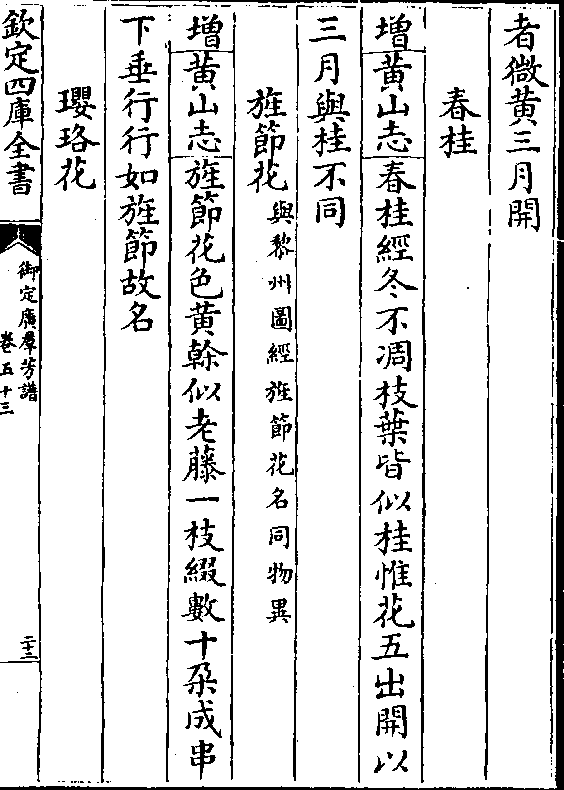 者微黃三月開
春桂
增黃山志春桂經冬不凋枝葉皆似桂惟花五出開以
三月與桂不同
旌節花與黎州圖經旌節花名同物異
增黃山志旌節花色黃榦似老藤一枝綴數十朶成串
下垂行行如旌節故名
瓔珞花
欽定四庫全書
御定廣羣芳譜
卷五十三
二十二